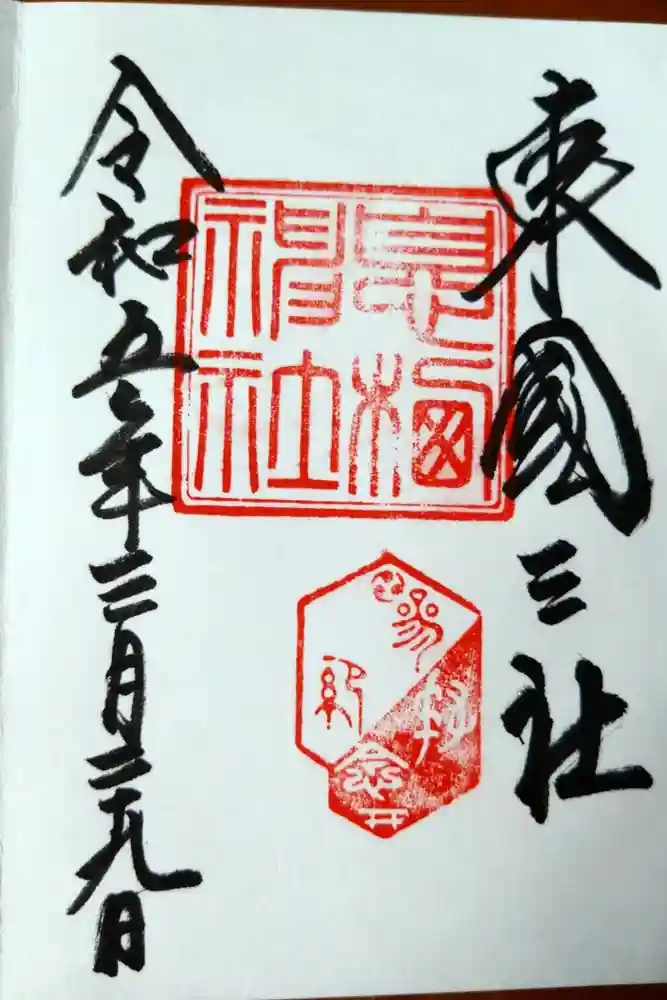 東國三社
息栖神社
参拝記念
令和五年三月二十九日